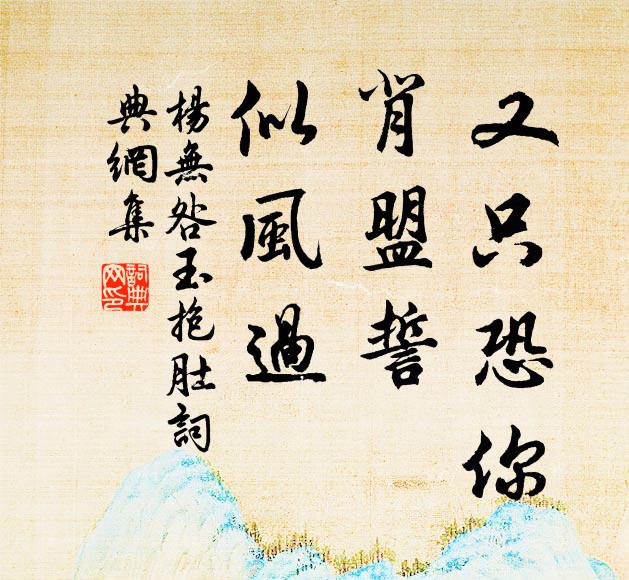 又只恐你
背盟誓
似風過
楊無咎玉抱肚詞
典網集
詞典
网印